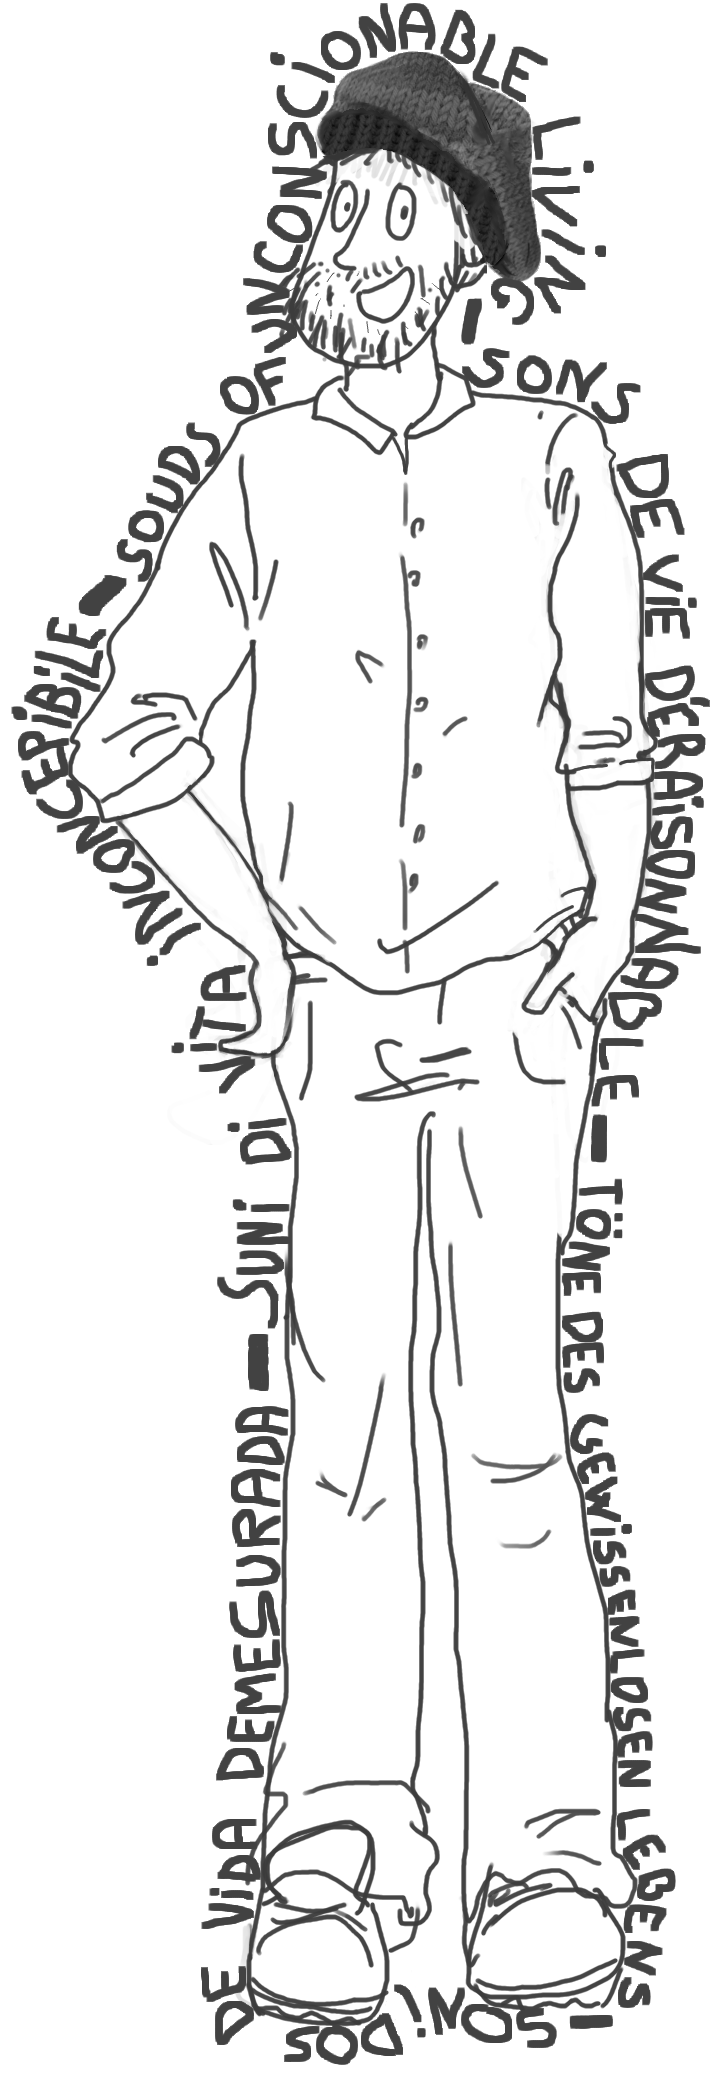 SOUDS OF UNCONSCIONABLE LiViNG
– SONS DE ViE DÉRAiSONNABLE
– TÖNE DES GEWiSSENLOSEN LEBENS
– SONiDOS DE ViDA DEMESURADA
– SUNi Di ViTA iNCONCEPiBiLE –